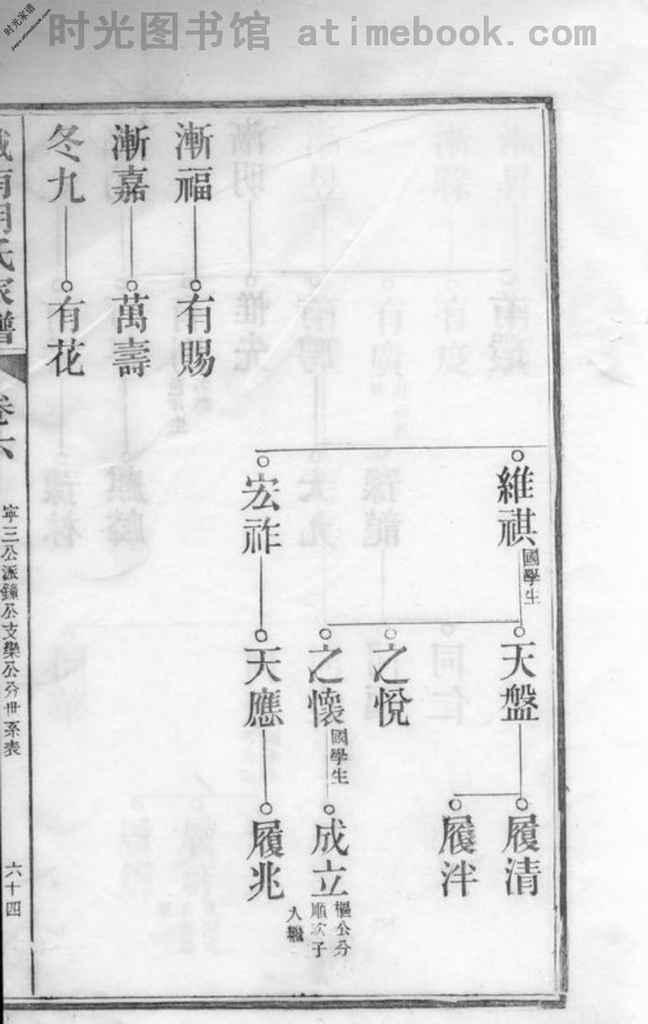 时光图书馆 atimebook.com
时光家谱
維祺 國學生
天盤
履清
履泮
之悅
之懷 國學生
成立 樞公分
順次子
入繼
宏祚
天應
履兆
漸福
有賜
漸嘉
萬壽
冬九
有花
氏家譜
卷六
寧三公派鐘公支樂公分世系表
六十四